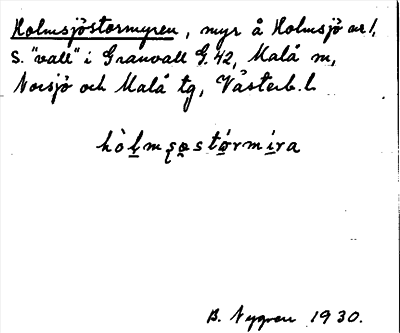 Holmsjöstormyren, myr å Holmsjö avr/,
S. "vall" i Granvall G. 42, Malå m,
Norsjö och Malå tg, Västerb. l.
hòlmsøstórmíra
B. Nygren 1930.